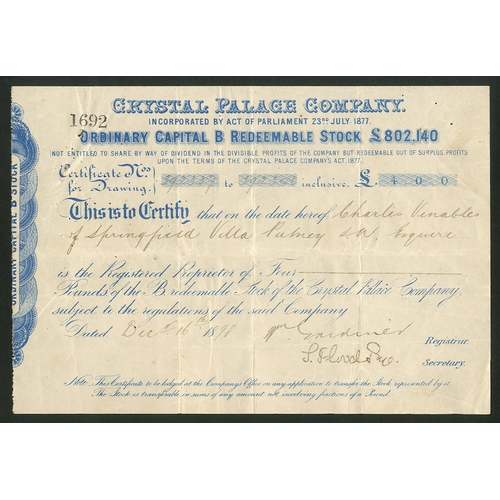 CRYSTAL PALACE COMPANY.
INCORPORATED BY ACT OF PARLIAMENT 23RD JULY. 1877.
1692
ORDINARY CAPITAL B REDEEMABLE STOCK £802,140
(NOT ENTITLED TO SHARE BY WAY OF DIVIDEND IN THE DIVISIBLE PROFITS OF THE COMPANY BUT REDEEMABLE OUT OF SURPLUS PROFITS
UPON THE TERMS OF THE CRYSTAL PALACE COMPANYS ACT. 1877.)
Certificate Nos
for Drawing. to inclusive. £ 400
This is to Certify that on the date hereof Charles Venables
of Springfield Villa Putney S.W. Esquire
is the Registered Proprietor of Four
Pounds of the B. redeemable Stock of the Crystal Palace Company,
subject to the regulations of the said Company
Dated Decr 16th 1898 Wm Gardiner
Registrar.
S. Flood Page
Secretary.
Note. This Certificate to be lodged at the Company's Office on any application to transfer the Stock represented by it.
The Stock is transferable in sums of any amount not involving fractions of a Pound.
ORDINARY CAPITAL B STOCK